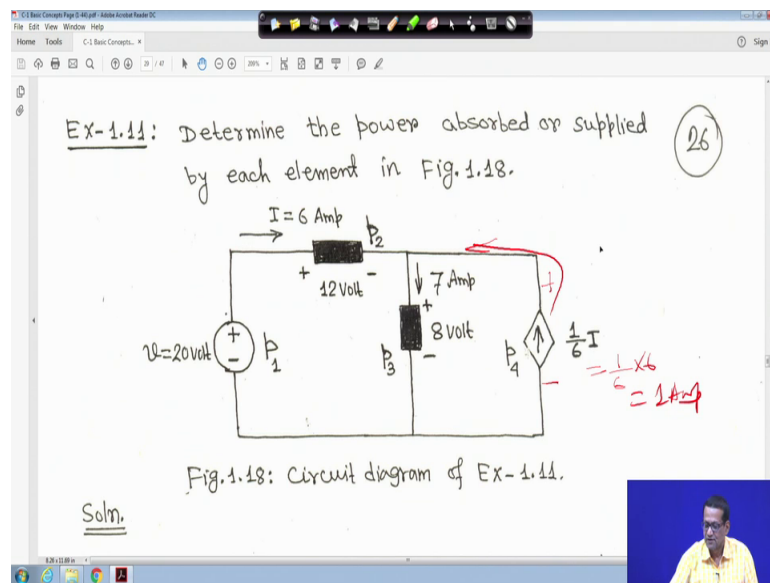 C-1 Basic Concepts Page (1-44).pdf - Adobe Acrobat Reader DC
File Edit View Window Help
Home Tools C-1 Basic Concepts... ×
Sign
29 / 47
200%
Ex-1.11: Determine the power absorbed or supplied
by each element in Fig. 1.18.
26
I = 6 Amp
p2
+ -
12 volt
7 Amp
+
8 volt
-
p3
v = 20 volt
+
-
p1
p4
1/6 I
+
-
= 1/6 × 6
= 1 Amp
Fig. 1.18: Circuit diagram of Ex-1.11.
Soln.
8.26 x 11.69 in